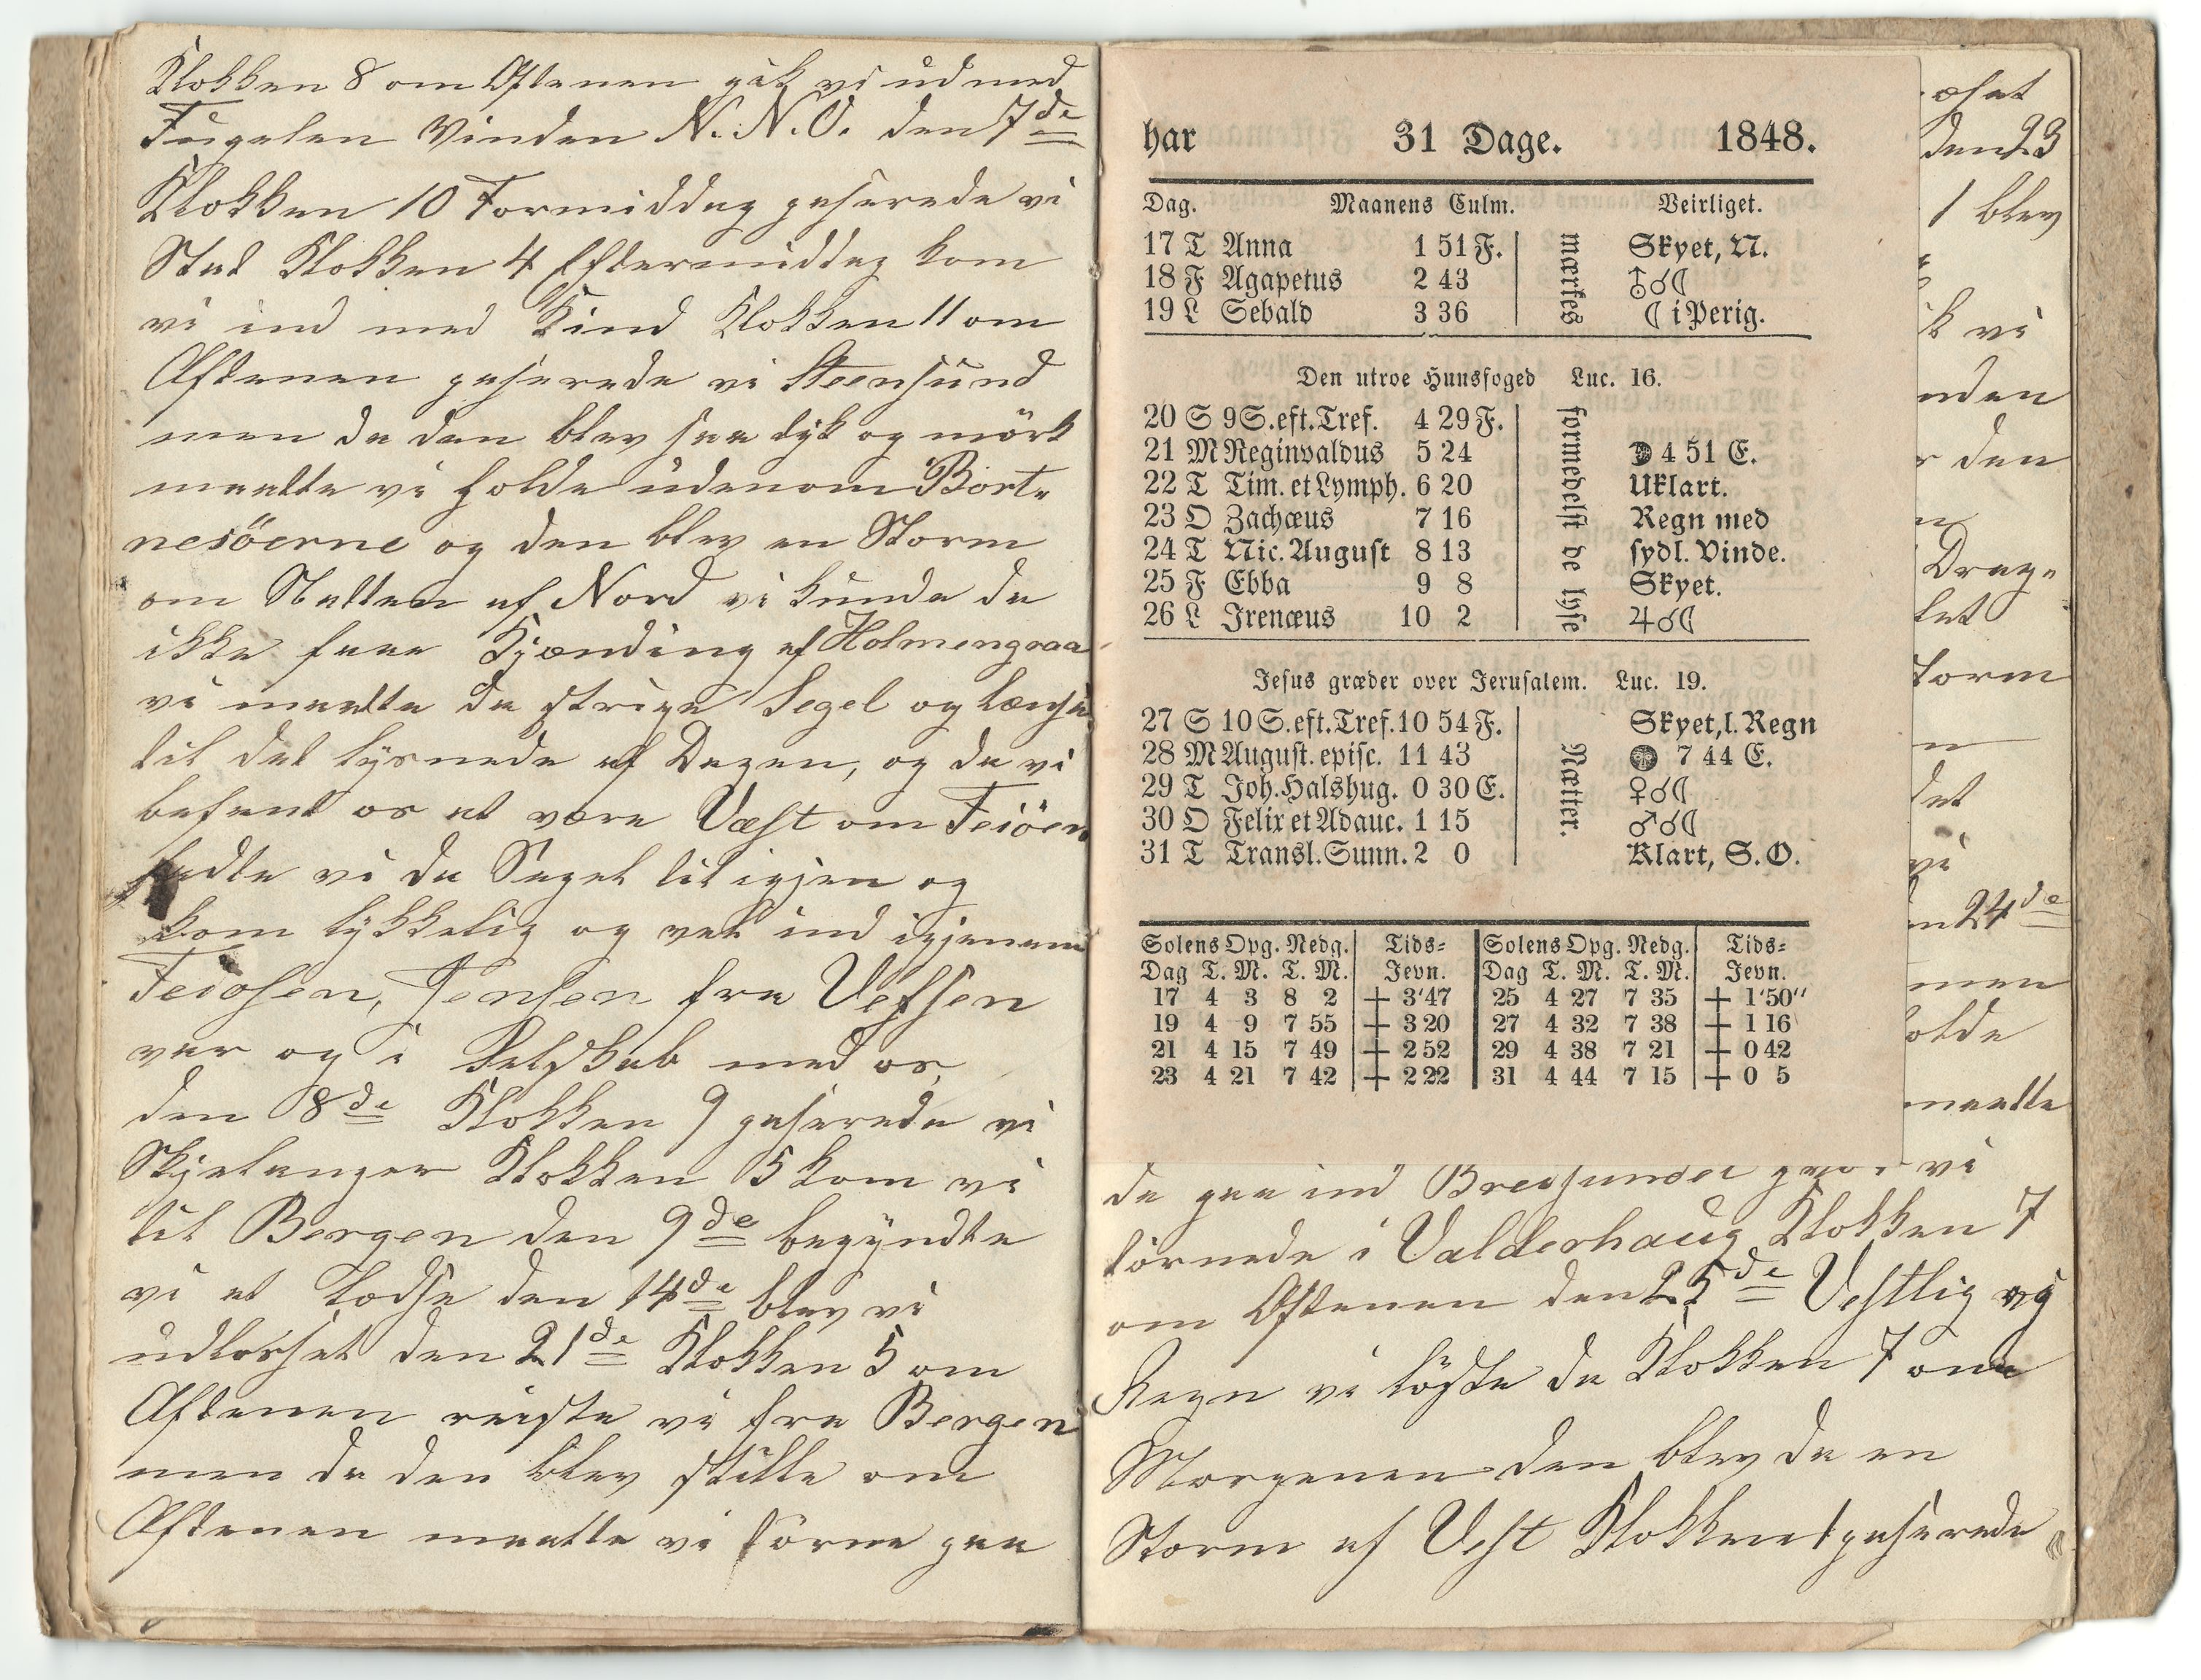 Klokken 8 om Aftenen gik vi ud med
Fugelen Vinden N.N.O. den 7de
Klokken 10 Formiddag paserede vi
Stat Klokken 4 Eftermiddag kom
vi ind med Kind Klokken 11 om
Aftenen paserede vi Steensund
men da den blev saa tyk og mörk
maatte vi holde udenom Bort-
nesöerne og den blev en Storm
om Natten af Nord vi kunde da
ikke faae Kjænding af Holmengraa
vi maatte da strige Segel og lænse
til det lysnede af Dagen, og da vi
befant os at være Væst om Feiöen
sadte vi da Seget til igjen og
kom lykkelig og vel ind igjenem
Feiosen, Jensen fra Vefsen
var og i Selskab med os,
den 8de Klokken 9 paserede vi
Skjelanger Klokken 5 kom vi
til Bergen den 9de begyndte
vi at Lodse den 14de blev vi
udlosset den 21de Klokken 5 om
Aftenen reiste vi fra Bergen
men da den blev stille om
Aftenen maatte vi törne paa
har 31 Dage. 1848.
Dag. Maanens Culm. Veirliget.
17 T Anna 1 51 F. Skyet, N.
18 F Agapetus 2 43 ♁☌☾
19 L Sebald 3 36 ☾ i Perig.
mærkes
Den utroe Huusfoged Luc. 16.
20 S 9 S. eft. Tref. 4 29 F.
21 M Reginvaldus 5 24 4 51 E.
22 T Tim. et Lymph. 6 20 Uklart.
23 O Zachæus 7 16 Regn med
24 T Nic. August 8 13 sydl. Vinde.
25 F Ebba 9 8 Skyet.
26 L Irenæus 10 2 ♃☌☾
formedelst de lyse
Jesus græder over Jerusalem. Luc. 19.
27 S 10 S. eft. Tref. 10 54 F. Skyet, l. Regn
28 M August. episc. 11 43 7 44 E.
29 T Joh. Halshug. 0 30 E. ♀☌☾
30 O Felix et Adauc. 1 15 ♂☌☾
31 T Transl. Sunn. 2 0 Klart, S. O.
Nætter.
Solens Opg. Nedg. Tids= Solens Opg. Nedg. Tids=
Dag T. M. T. M. Jevn. Dag T. M. T. M. Jevn.
17 4 3 8 2 + 3'47 25 4 27 7 35 + 1'50''
19 4 9 7 55 + 3 20 27 4 32 7 38 + 1 16
21 4 15 7 49 + 2 52 29 4 38 7 21 + 0 42
23 4 21 7 42 + 2 22 31 4 44 7 15 + 0 5
den 23
1 blev
k vi
nden
den
Drag-
let
torm
det
vi
24de
men
olde
maatte
da gaa ind Breisundet vi
törnede i Valderhaug Klokken 7
om Aftenen den 25de Vestlig og
Regn vi löste da Klokken 7 om
Morgenen den blev da en
Storm af Vest Klokken 1 paserede